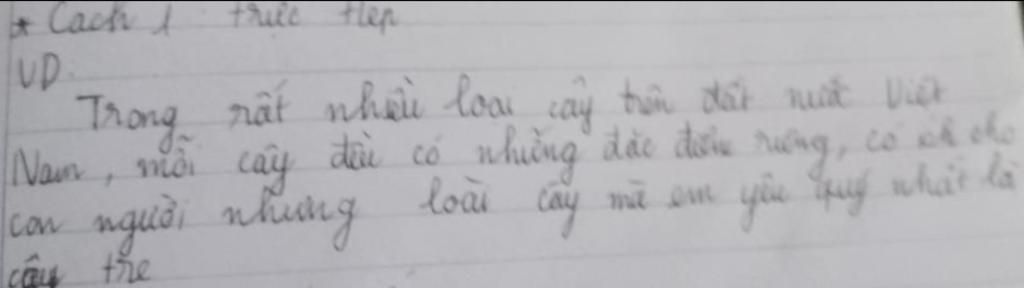 * Cách 1: trực tiếp
VD:
Trong rất nhiều loại cây trên đất nước Việt
Nam, mỗi cây đều có những đặc điểm riêng, có ích cho
con người nhưng loài cây mà em yêu quý nhất là
cây tre